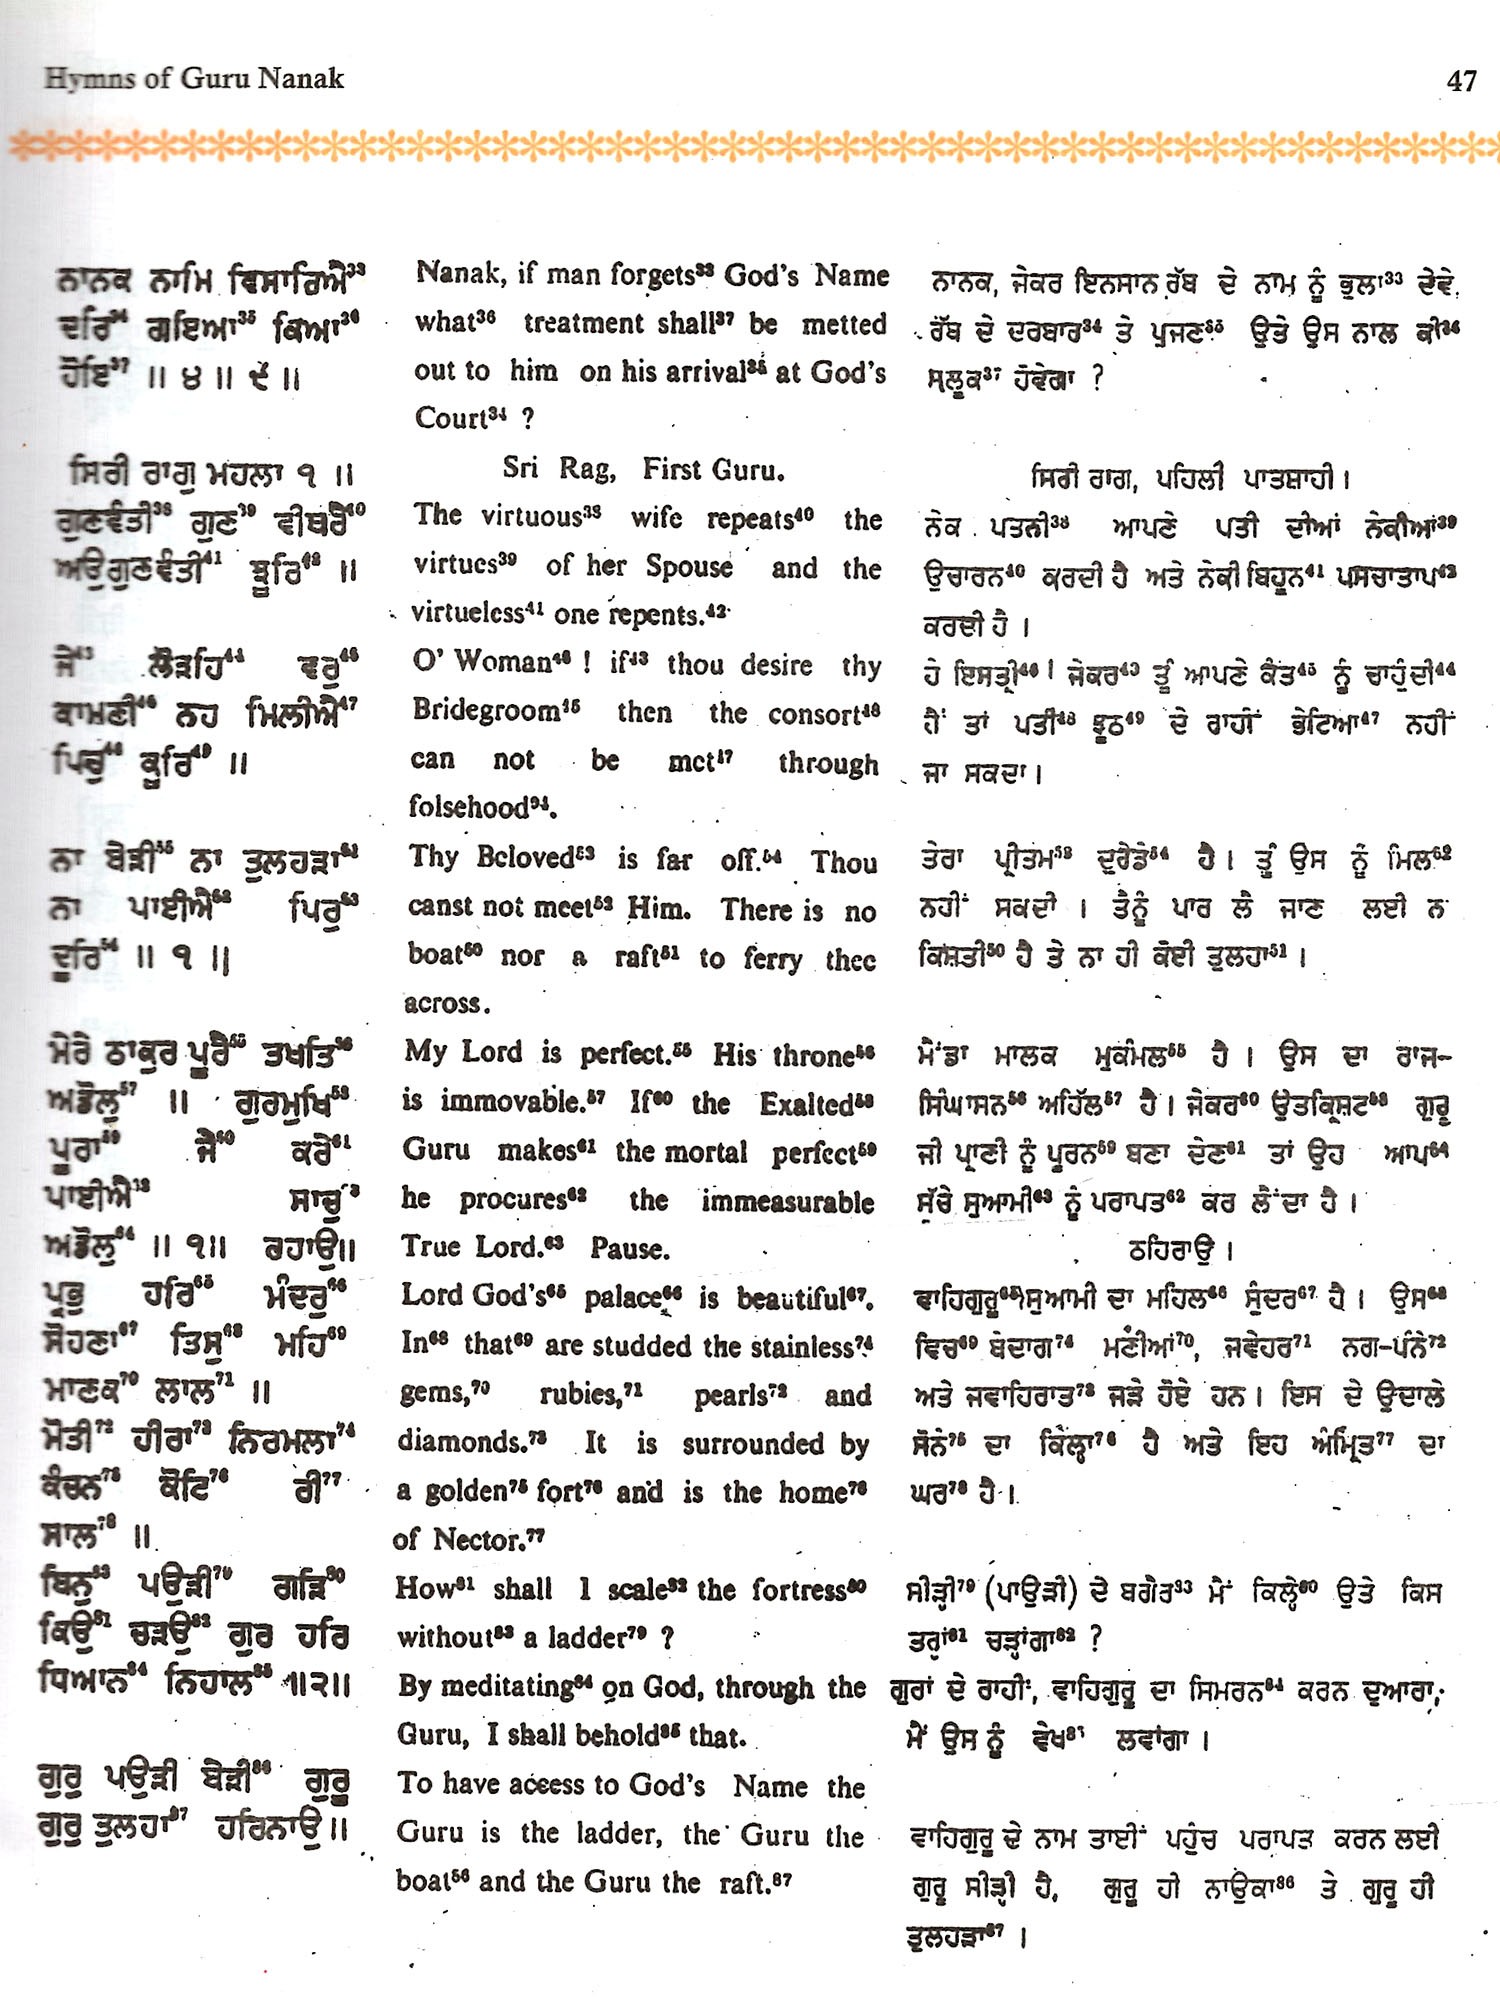 Hymns of Guru Nanak
47
ਨਾਨਕ ਨਾਮਿ ਵਿਸਾਰਿਐ³³
ਦਰਿ³⁴ ਗਇਆ³⁵ ਕਿਆ³⁶
ਹੋਇ³⁷ ॥ ੪ ॥ ੮ ॥
ਸਿਰੀ ਰਾਗੁ ਮਹਲਾ ੧ ॥
ਗੁਣਵੰਤੀ³⁸ ਗੁਣ³⁹ ਵੀਥਰੈ⁴⁰
ਅਉਗੁਣਵੰਤੀ⁴¹ ਝੂਰਿ⁴² ॥
ਜੇ⁴³ ਲੋੜਹਿ⁴⁴ ਵਰੁ⁴⁵
ਕਾਮਣੀ⁴⁶ ਨਹ ਮਿਲੀਐ⁴⁷
ਪਿਰੁ⁴⁸ ਕੂਰਿ⁴⁹ ॥
ਨਾ ਬੇੜੀ⁵⁰ ਨਾ ਤੁਲਹੜਾ⁵¹
ਨਾ ਪਾਈਐ⁵² ਪਿਰੁ⁵³
ਦੂਰਿ⁵⁴ ॥ ੧ ॥
ਮੇਰੇ ਠਾਕੁਰ ਪੂਰੈ⁵⁵ ਤਖਤਿ⁵⁶
ਅਡੋਲੁ⁵⁷ ॥ ਗੁਰਮੁਖਿ⁵⁸
ਪੂਰਾ⁵⁹ ਜੇ⁶⁰ ਕਰੇ⁶¹
ਪਾਈਐ⁶² ਸਾਚੁ⁶³
ਅਡੋਲੁ⁶⁴ ॥ ੧॥ ਰਹਾਉ॥
ਪ੍ਰਭੁ ਹਰਿ⁶⁵ ਮੰਦਰੁ⁶⁶
ਸੋਹਣਾ⁶⁷ ਤਿਸੁ⁶⁸ ਮਹਿ⁶⁹
ਮਾਣਕ⁷⁰ ਲਾਲ⁷¹ ॥
ਮੋਤੀ⁷² ਹੀਰਾ⁷³ ਨਿਰਮਲਾ⁷⁴
ਕੰਚਨ⁷⁵ ਕੋਟਿ⁷⁶ ਰੀ⁷⁷
ਸਾਲ⁷⁸ ॥
ਬਿਨੁ⁸³ ਪਉੜੀ⁷⁹ ਗੜਿ⁸⁰
ਕਿਉ⁸¹ ਚੜਉ⁸² ਗੁਰ ਹਰਿ
ਧਿਆਨ⁸⁴ ਨਿਹਾਲ⁸⁵ ॥੨॥
ਗੁਰੁ ਪਉੜੀ ਬੇੜੀ⁸⁶ ਗੁਰੂ
ਗੁਰੁ ਤੁਲਹਾ⁸⁷ ਹਰਿਨਾਉ॥
Nanak, if man forgets³³ God's Name
what³⁶ treatment shall³⁷ be metted
out to him on his arrival³⁵ at God's
Court³⁴ ?
Sri Rag, First Guru.
The virtuous³⁸ wife repeats⁴⁰ the
virtues³⁹ of her Spouse and the
virtueless⁴¹ one repents.⁴²
O' Woman⁴⁶ ! if⁴³ thou desire thy
Bridegroom⁴⁵ then the consort⁴⁸
can not be met⁴⁷ through
folsehood⁹⁴.
Thy Beloved⁵³ is far off.⁵⁴ Thou
canst not meet⁵² Him. There is no
boat⁵⁰ nor a raft⁵¹ to ferry thee
across.
My Lord is perfect.⁵⁵ His throne⁵⁶
is immovable.⁵⁷ If⁶⁰ the Exalted⁵⁸
Guru makes⁶¹ the mortal perfect⁵⁹
he procures⁶² the immeasurable
True Lord.⁶³ Pause.
Lord God's⁶⁵ palace⁶⁶ is beautiful⁶⁷.
In⁶⁸ that⁶⁹ are studded the stainless⁷⁴
gems,⁷⁰ rubies,⁷¹ pearls⁷² and
diamonds.⁷³ It is surrounded by
a golden⁷⁵ fort⁷⁶ and is the home⁷⁸
of Nector.⁷⁷
How⁸¹ shall I scale⁸² the fortress⁸⁰
without⁸³ a ladder⁷⁹ ?
By meditating⁸⁴ on God, through the
Guru, I shall behold⁸⁵ that.
To have access to God's Name the
Guru is the ladder, the Guru the
boat⁸⁶ and the Guru the raft.⁸⁷
ਨਾਨਕ, ਜੇਕਰ ਇਨਸਾਨ ਰੱਬ ਦੇ ਨਾਮ ਨੂੰ ਭੁਲਾ³³ ਦੇਵੇ,
ਰੱਬ ਦੇ ਦਰਬਾਰ³⁴ ਤੇ ਪੁਜਣ³⁵ ਉਤੇ ਉਸ ਨਾਲ ਕੀ³⁶
ਸਲੂਕ³⁷ ਹੋਵੇਗਾ ?
ਸਿਰੀ ਰਾਗ, ਪਹਿਲੀ ਪਾਤਸ਼ਾਹੀ।
ਨੇਕ ਪਤਨੀ³⁸ ਆਪਣੇ ਪਤੀ ਦੀਆਂ ਨੇਕੀਆਂ³⁹
ਉਚਾਰਨ⁴⁰ ਕਰਦੀ ਹੈ ਅਤੇ ਨੇਕੀ ਬਿਹੂਨ⁴¹ ਪਸਚਾਤਾਪ⁴²
ਕਰਦੀ ਹੈ।
ਹੇ ਇਸਤ੍ਰੀ⁴⁶! ਜੇਕਰ⁴³ ਤੂੰ ਆਪਣੇ ਕੰਤ⁴⁵ ਨੂੰ ਚਾਹੁੰਦੀ⁴⁴
ਹੈਂ ਤਾਂ ਪਤੀ⁴⁸ ਝੂਠ⁴⁹ ਦੇ ਰਾਹੀਂ ਭੇਟਿਆ⁴⁷ ਨਹੀਂ
ਜਾ ਸਕਦਾ।
ਤੇਰਾ ਪ੍ਰੀਤਮ⁵³ ਦੁਰੇਡੇ⁵⁴ ਹੈ। ਤੂੰ ਉਸ ਨੂੰ ਮਿਲ⁵²
ਨਹੀਂ ਸਕਦੀ। ਤੈਨੂੰ ਪਾਰ ਲੈ ਜਾਣ ਲਈ ਨ
ਕਿਸ਼ਤੀ⁵⁰ ਹੈ ਤੇ ਨਾ ਹੀ ਕੋਈ ਤੁਲਹਾ⁵¹।
ਮੈਂਡਾ ਮਾਲਕ ਮੁਕੰਮਲ⁵⁵ ਹੈ। ਉਸ ਦਾ ਰਾਜ-
ਸਿੰਘਾਸਨ⁵⁶ ਅਹਿੱਲ⁵⁷ ਹੈ। ਜੇਕਰ⁶⁰ ਉਤਕ੍ਰਿਸ਼ਟ⁵⁸ ਗੁਰੂ
ਜੀ ਪ੍ਰਾਣੀ ਨੂੰ ਪੂਰਨ⁵⁹ ਬਣਾ ਦੇਣ⁶¹ ਤਾਂ ਉਹ ਆਪ⁶⁴
ਸੁੱਚੇ ਸੁਆਮੀ⁶³ ਨੂੰ ਪਰਾਪਤ⁶² ਕਰ ਲੈਂਦਾ ਹੈ।
ਠਹਿਰਾਉ।
ਵਾਹਿਗੁਰੂ⁶⁵ ਸੁਆਮੀ ਦਾ ਮਹਿਲ⁶⁶ ਸੁੰਦਰ⁶⁷ ਹੈ। ਉਸ⁶⁸
ਵਿਚ⁶⁹ ਬੇਦਾਗ⁷⁴ ਮਣੀਆਂ⁷⁰, ਜਵੇਹਰ⁷¹ ਨਗ-ਪੰਨੇ⁷²
ਅਤੇ ਜਵਾਹਿਰਾਤ⁷³ ਜੜੇ ਹੋਏ ਹਨ। ਇਸ ਦੇ ਉਦਾਲੇ
ਸੋਨੇ⁷⁵ ਦਾ ਕਿਲ੍ਹਾ⁷⁶ ਹੈ ਅਤੇ ਇਹ ਅੰਮ੍ਰਿਤ⁷⁷ ਦਾ
ਘਰ⁷⁸ ਹੈ।
ਸੀੜ੍ਹੀ⁷⁹ (ਪਾਉੜੀ) ਦੇ ਬਗੈਰ⁸³ ਮੈਂ ਕਿਲ੍ਹੇ⁸⁰ ਉਤੇ ਕਿਸ
ਤਰ੍ਹਾਂ⁸¹ ਚੜ੍ਹਾਂਗਾ⁸² ?
ਗੁਰਾਂ ਦੇ ਰਾਹੀਂ, ਵਾਹਿਗੁਰੂ ਦਾ ਸਿਮਰਨ⁸⁴ ਕਰਨ ਦੁਆਰਾ,
ਮੈਂ ਉਸ ਨੂੰ ਵੇਖ⁸⁵ ਲਵਾਂਗਾ।
ਵਾਹਿਗੁਰੂ ਦੇ ਨਾਮ ਤਾਈਂ ਪਹੁੰਚ ਪਰਾਪਤ ਕਰਨ ਲਈ
ਗੁਰੂ ਸੀੜ੍ਹੀ ਹੈ, ਗੁਰੂ ਹੀ ਨਾਉਕਾ⁸⁶ ਤੇ ਗੁਰੂ ਹੀ
ਤੁਲਹੜਾ⁸⁷।